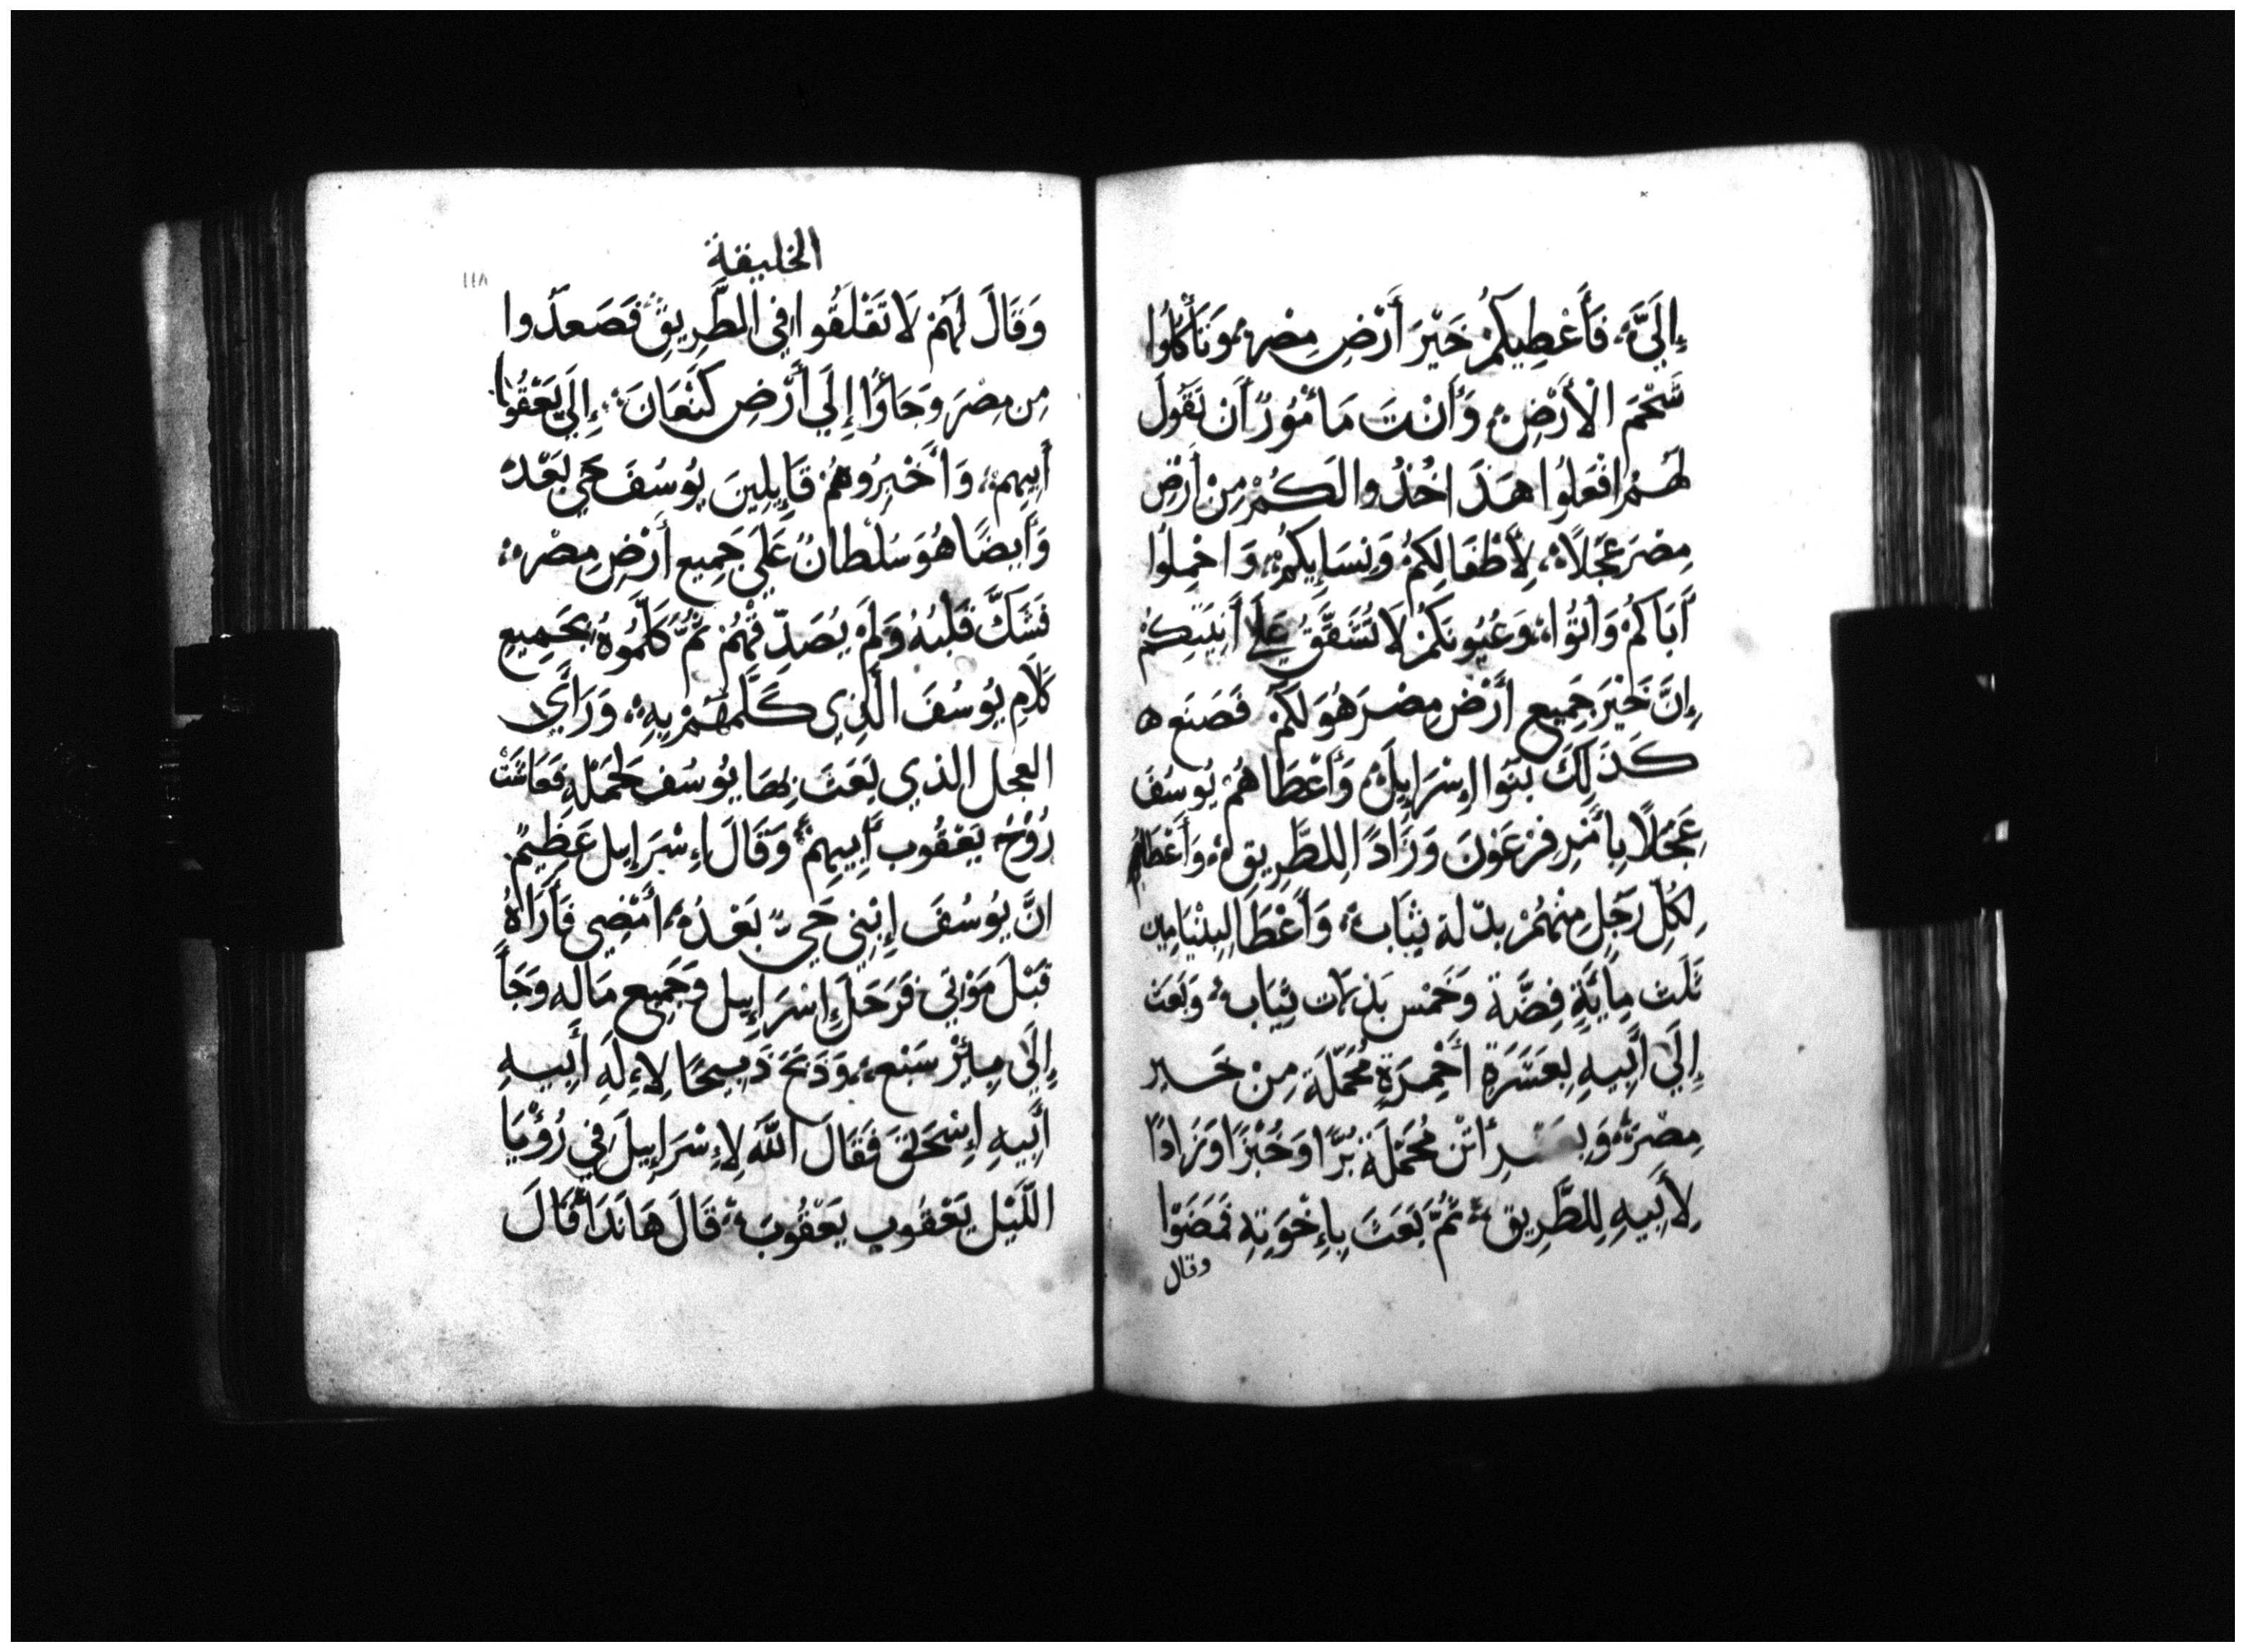 إِلَيَّ؞ فَأُعْطِيكُمْ خَيْرَ أَرْضِ مِصْرَ؞ وَتَأْكُلُوا
شَحْمَ الْأَرْضِ؞ وَأَنْتَ مَأْمُورٌ أَنْ تَقُولَ
لَهُمْ افْعَلُوا هَذَا خُذُوا لَكُمْ مِنْ أَرْضِ
مِصْرَ عَجَلًا؞ لِأَطْفَالِكُمْ وَنِسَايِكُمْ؞ وَاحْمِلُوا
أَبَاكُمْ وَأْتُوا؞ وَعُيُونَكُمْ لَا تُشَفِّقُ عَلَى أَنِيَتِكُمْ
إِنَّ خَيْرَ جَمِيعِ أَرْضِ مِصْرَ هُوَ لَكُمْ فَصَنَع ه
كَذَلِكَ بَنُوا إِسْرَايِلَ؞ وَأَعْطَاهُمْ يُوسُفَ
عَجَلًا بِأَمْرِ فِرْعَوْنَ وَزَادًا لِلطَّرِيقِ؞ وَأَعْطَاهُمْ
لِكُلِّ رَجُلٍ مِنْهُمْ بدلة ثِيَاب؞ وَأَعْطَا لِبِنْيَامِين
ثَلَث مِايَّةِ فِضَّة وَخَمْس بَدلات ثِيَاب؞ وَبَعَث
إِلَى أَبِيهِ بِعَشَرَةِ أَحْمِرَةٍ مُحَمَّلَة مِنْ خَير
مِصْرَ؞ وَبِعَشرِ أُتْن مُحَمَّلَة بُرًّا وَخُبْزًا وَزَادًا
لِأَبِيهِ لِلطَّرِيقِ؞ ثُمَّ بَعَثَ بِإِخْوَتِهِ فَمَضَوْا
وقال
الخليقة
١١٨
وَقَالَ لَهُمْ لَا تَقْلَقُوا فِي الطَّرِيقِ؞ فَصَعدُوا
مِن مِصْرَ وَجَاؤُا إِلَي أَرْضِ كَنْعَانَ؞ إِلَى يَعْقُوبَ
أَبِيهِم؞ وَأَخْبِرُوهُمْ قَايِلِينَ يُوسُفَ حَي بَعْدُ
وَأَيضًا هُوَ سُلْطَانٌ عَلَي جَمِيعِ أَرْضِ مِصْرَ؞
فَشَكَّ قَلْبُهُ وَلَمْ يُصَدِّقْهُمْ ثُمَّ كَلَّمُوهُ بِجَمِيعِ
كَلَامِ يُوسُفَ الَّذِي كَلَّمَهُمْ بِهِ؞ وَرَأَي
العجل الذي بَعَثَ بِهَا يُوسُف لحَمْلِهِ فَعَاشَتْ
رُوْحُ يَعْقُوب أَبِيهِمْ؞ وَقَالَ إِسْرَايل عَظِيمٌ
انَّ يُوسُفَ إِبْنِي حَي؞ بَعْدُ أَمْضِي فَأَرَاهُ
قَبْلَ مَوْتِي فَرَحَلَ إِسْرَايِيل وَجَمِيع مَالِهِ وَجَأَ
إِلَى بِئْر سَبْع؞ وَذَبَحَ ذَبِيحًا لِإِلَهِ أَبِيهِ
أَبِيهِ إِسْحَقَ فَقَالَ اللَّه لِإِسْرَايِيلَ فِي رُؤْيَا
اللَّيْل يَعْقُوب يَعْقُوبَ؞ قَالَ هَأَنَذَا؞ قَالَ